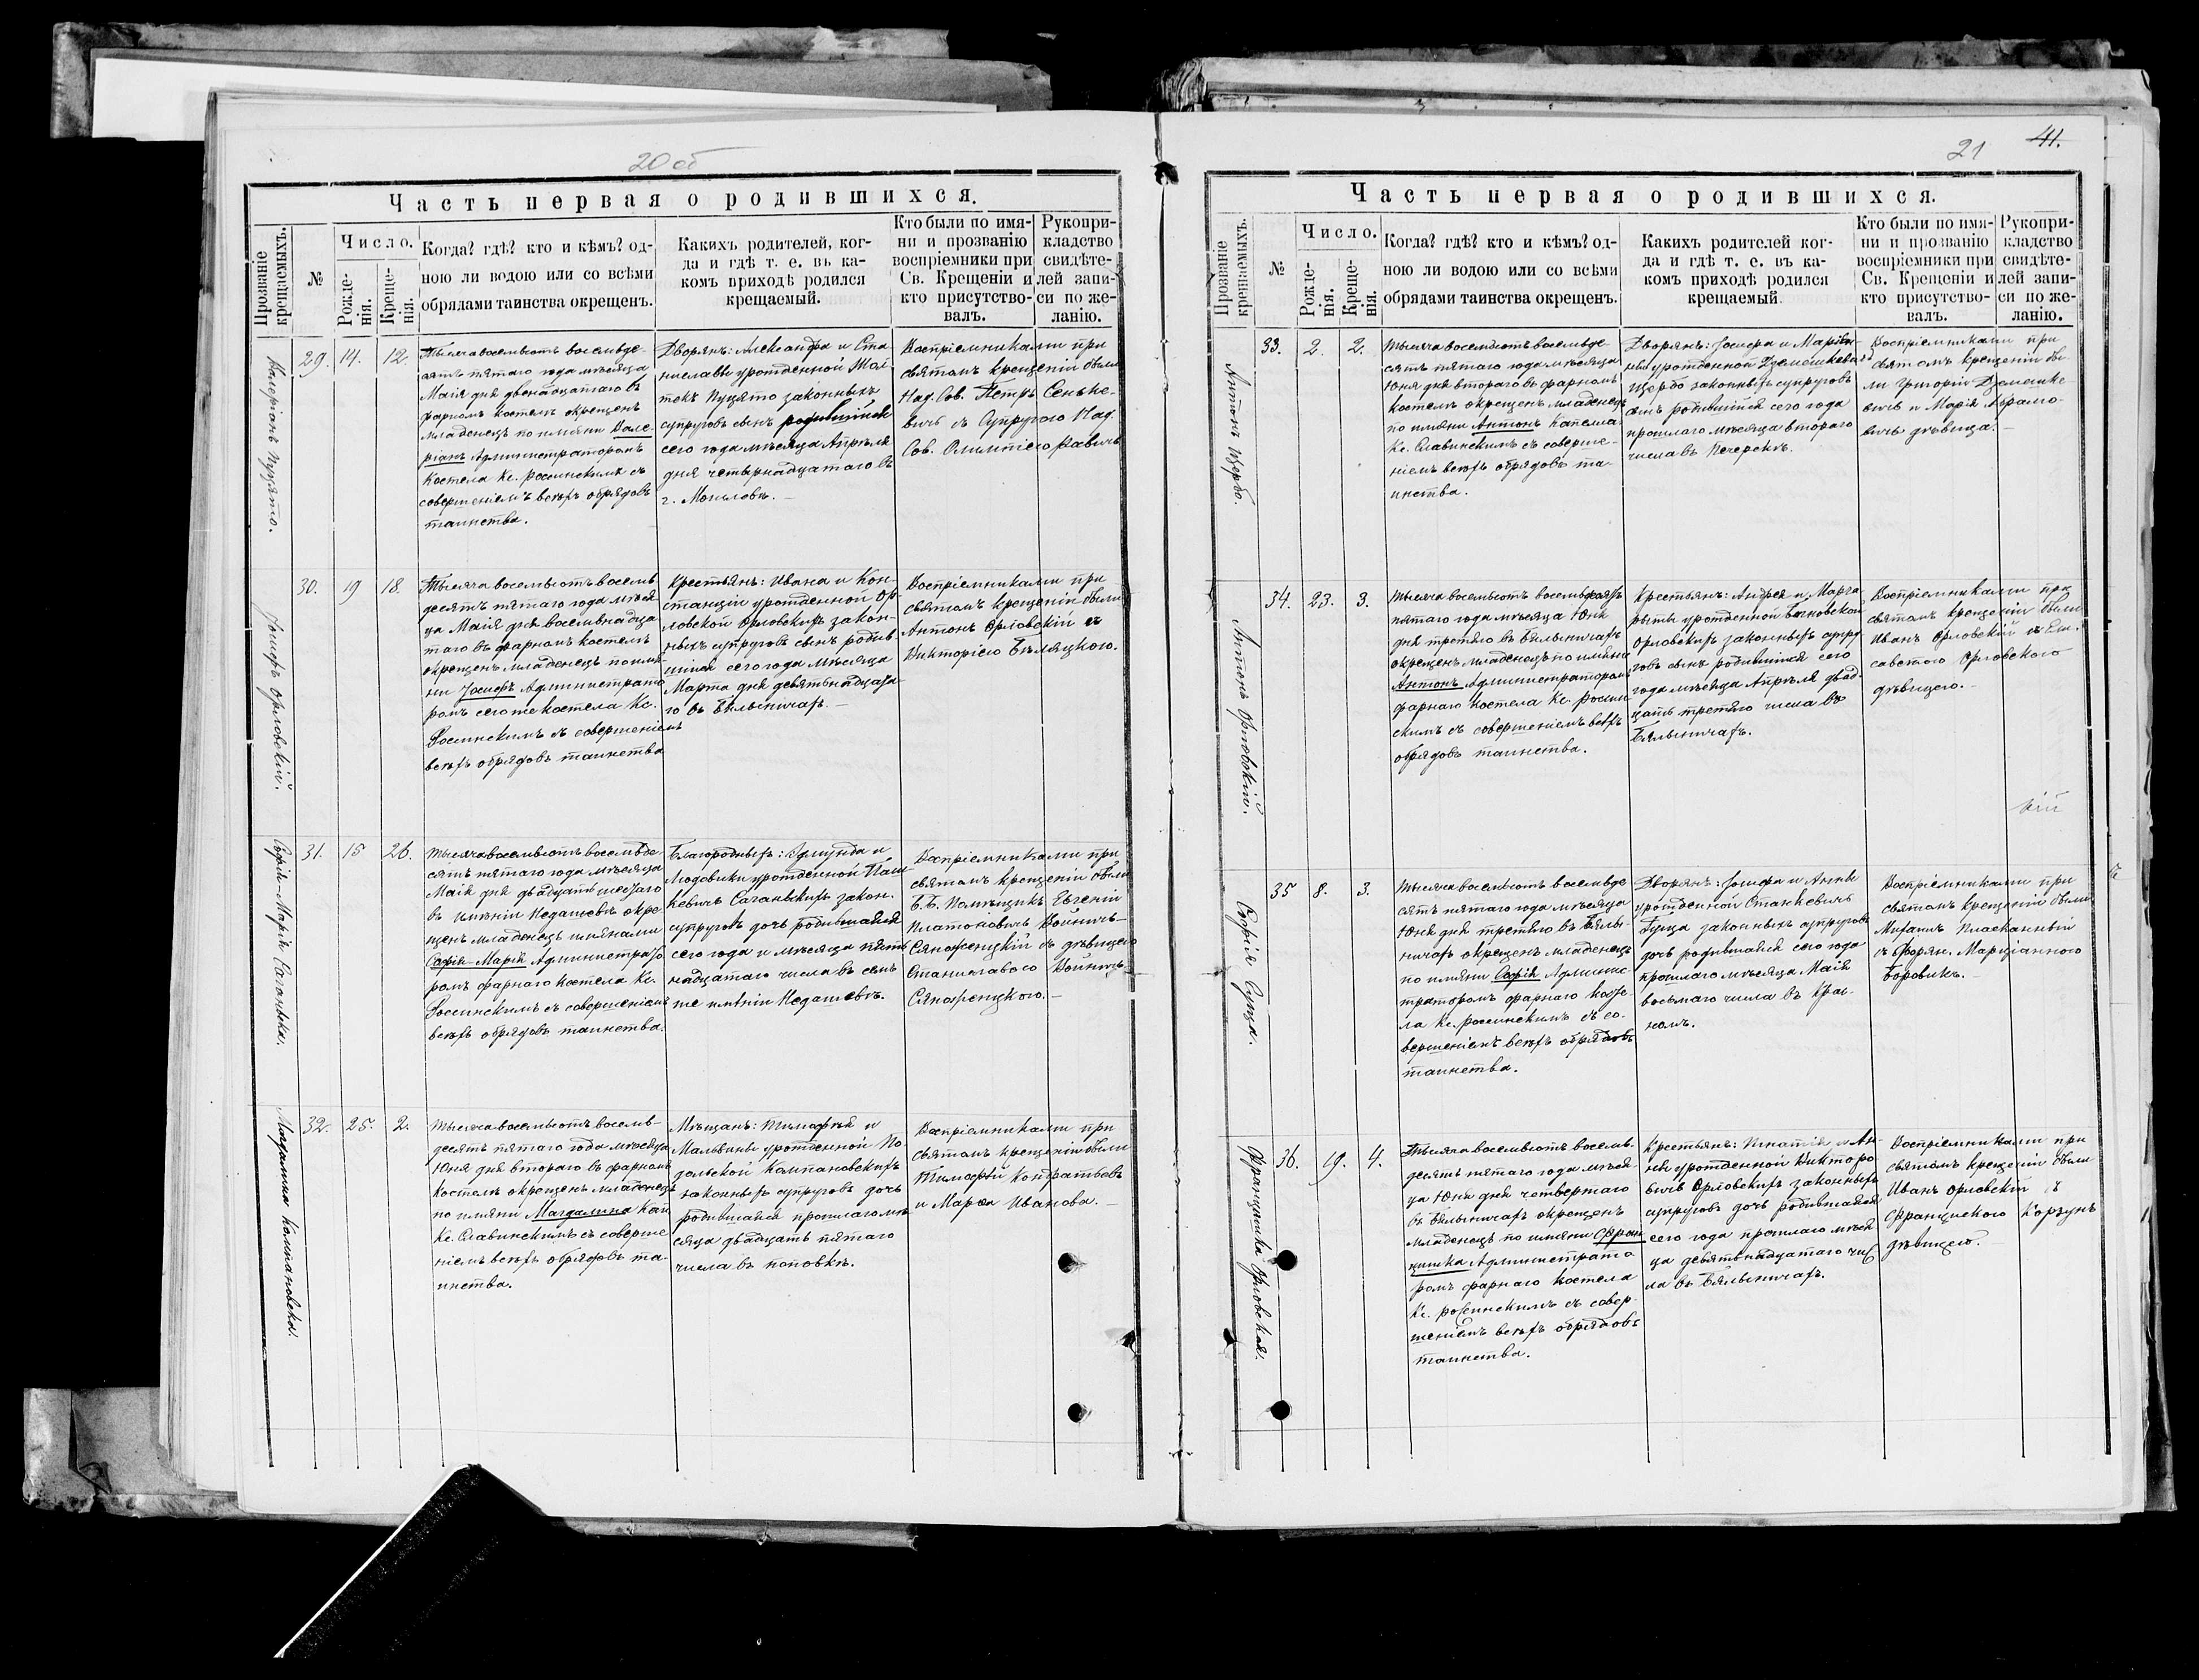 20 об
Часть первая о родившихся.
Прозваніе крещаемыхъ.
№
Число.
Рожде-
нія.
Креще-
нія.
Когда? гдѣ? кто и кѣмъ? од-
ною ли водою или со всѣми
обрядами таинства окрещенъ.
Какихъ родителей, ког-
да и гдѣ т. е. въ ка-
комъ приходѣ родился
крещаемый.
Кто были по имя-
ни и прозванію
воспріемники при
Св. Крещеніи и
кто присутство-
валъ.
Рукопри-
кладство
свидѣте-
лей запи-
си по же-
ланію.
Валеріонъ Пузято.
29. 14. 12.
Тысяча восемьсотъ восемьде-
сятъ пятаго года мѣсяца
Маія дня двенадцатаго въ
фарномъ костелѣ окрещенъ
младенецъ по имени Вале-
ріанъ Администраторомъ
Костела Кс. Россинскимъ съ
совершеніемъ всѣхъ обрядовъ
таинства.
Дворянъ: Александра и Ста
ниславы урожденной Жол
текъ Пузято законныхъ
супруговъ сынъ родившійся
сего года мѣсяца Апрѣля
дня четырнадцатаго въ
г. Могилевѣ. —
Воспріемниками при
святомъ крещеніи были
Над. Сов. Петръ Сеньке-
вичъ съ Супругою Над.
Сов. Олимпіею
Іосифъ Орловскій.
30. 19 18.
Тысяча восемьсотъ восемь
десятъ пятаго года мѣся
ца Маія дня восемнадца
таго въ фарномъ костелѣ
окрещенъ младенецъ по имя
ни Іосифъ Администрато
ромъ сего же костела Кс.
Россинскимъ съ совершеніемъ
всѣхъ обрядовъ таинства
Крестьянъ: Ивана и Кон-
станціи урожденной Ор-
ловской Орловскихъ закон-
ныхъ супруговъ сынъ родив
шійся сего года мѣсяца
Марта дня девятнадцата
го въ Бялыничахъ. —
Воспріемниками при
святомъ крещеніи были
Антонъ Орловскій съ
Викторіею Бѣляцкою.
Софія-Марія Саганьска.
31. 15 26.
Тысяча восемьсотъ восемьде
сятъ пятаго года мѣсяца
Маія дня двадцать шестаго
въ имѣніи Недашевѣ окре
щенъ младенецъ имянами
Софія-Марія Администрато
ромъ фарнаго костела Кс.
Россинскимъ съ совершеніемъ
всѣхъ обрядовъ таинства.
Благородныхъ: Эдмунда и
Людовики урожденной Паш
кевичъ Саганьскихъ закон.
супруговъ дочь родившаяся
сего года и мѣсяца пят
надцатаго числа въ семъ
же имѣніи Недашевѣ.
Воспріемниками при
святомъ крещеніи были
Б.Б. Помѣщикъ Евгеній
Платоновичъ Войничъ-
Сяноженцкій съ дѣвицею
Станиславою Войничъ-
Сяноженцкою. —
Магдалина Компановска.
32. 25. 2.
Тысяча восемьсотъ восемь-
десятъ пятаго года мѣсяца
Юня дня втораго въ фарномъ
Костелѣ окрещенъ младенецъ
по имяни Магдалина Кап
Кс. Славинскимъ съ соверше
ніемъ всѣхъ обрядовъ та-
инства.
Мѣщанъ: Тимофѣя и
Мальвины урожденной По
дольской Компановскихъ
законныхъ супруговъ дочь
родившаяся прошлаго мѣ
сяца двадцать пятаго
числа въ поповкѣ.
Воспріемниками при
святомъ крещеніи были
Тимофей Кондратьевъ
и Марья Иванова. —
21 41.
Часть первая о родившихся.
Прозваніе крещаемыхъ.
№
Число.
Рожде-
нія.
Креще-
нія.
Когда? гдѣ? кто и кѣмъ? од-
ною ли водою или со всѣми
обрядами таинства окрещенъ.
Какихъ родителей ког-
да и гдѣ т. е. въ ка-
комъ приходѣ родился
крещаемый.
Кто были по имя-
ни и прозванію
воспріемники при
Св. Крещеніи и
кто присутство-
валъ.
Рукопри-
кладство
свидѣте-
лей запи-
си по же-
ланію.
Антонъ Щербо.
33. 2. 2.
Тысяча восемьсотъ восемьде
сятъ пятаго года мѣсяца
Юня дня втораго въ фарномъ
костелѣ окрещенъ младенецъ
по имяни Антонъ Капелла
Кс. Славинскимъ съ соверше-
ніемъ всѣхъ обрядовъ та-
инства.
Дворянъ: Іосифа и Маріан-
ны урожденной Дземешкевичъ
Щербо законныхъ супруговъ
сынъ родившійся сего года
прошлаго мѣсяца втораго
числа въ Печерскѣ.
Воспріемниками при
святомъ крещеніи бы
ли Григорій Дземешке
вичъ и Марія Абрамо-
вичъ дѣвица. —
Антонъ Орловскій.
34. 23. 3.
Тысяча восемьсотъ восемьдесятъ
пятаго года мѣсяца Юня
дня третяго въ Бялыничахъ
окрещенъ младенецъ по имени
Антонъ Администраторомъ
фарнаго Костела Кс. Россин
скимъ съ совершеніемъ всѣхъ
обрядовъ таинства.
Крестьянъ: Андрея и Марга
риты урожденной
Орловскихъ законныхъ супру
говъ сынъ родившійся сего
года мѣсяца Апрѣля двад-
цать третяго числа въ
Бялыничахъ.
Воспріемниками при
святомъ крещеніи были
Иванъ Орловскій съ Ели.
саветою Орловскою
дѣвицею. —
вій
Софія Гуща.
35 8. 3.
Тысяча восемьсотъ восемьде
сятъ пятаго года мѣсяца
Юня дня третяго въ Бялы-
ничахъ окрещенъ младенецъ
по имяни Софія Админис-
траторомъ фарнаго косте-
ла Кс. Россинскимъ съ со-
вершеніемъ всѣхъ обрядовъ
таинства.
Дворянъ: Іосифа и Анны
урожденной Станкевичъ
Гуща законныхъ супруговъ
дочь родившаяся сего года
прошлаго мѣсяца Маія
восьмаго числа въ Крас-
номъ.
Воспріемниками при
святомъ крещеніи были
Михаилъ
съ Дворян. Марціанною
Боровикъ. —
Францишка Орловская.
36. 19. 4.
Тысяча восемьсотъ восемь-
десятъ пятаго года мѣся-
ца Юня дня четвертаго
въ Бялыничахъ окрещенъ
младенецъ по имени Фран
цишка Администрато
ромъ фарнаго Костела
Кс. Россинскимъ съ совер-
шеніемъ всѣхъ обрядовъ
таинства.
Крестьянъ: Игнатія и Ан-
ны урожденной Викторо
вичъ Орловскихъ законныхъ
супруговъ дочь родившаяся
сего года прошлаго мѣся
ца девятнадцатаго чис
ла въ Бялыничахъ.
Воспріемниками при
святомъ крещеніи были
Иванъ Орловскій съ
Францискою Корзунъ
дѣвицею. —